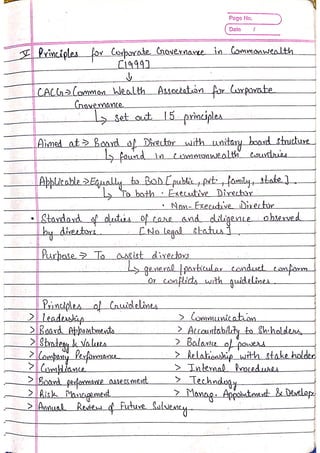 Page No.
Date /
V Principles for Corporate Governance in Commonwealth
[1999]
↓
CACG → Common Wealth Association for Corporate
Governance
↳ set out 15 principles
Aimed at → Board of Director with unitary board structure
↳ found in commonwealth countries
Applicable → Equally to BOD [public, pvt., family, state].
↳ To both · Executive Director
· Non-Executive Director
• Standard of duties of care and diligence observed
by directors. [No legal status].
Purpose → To assist directors
↳ general/particular conduct conform
or conflicts with guidelines.
Principles of Guidelines
> Leadership > Communication
> Board Appointments > Accountability to Sh-holders
> Strategy & Values > Balance of powers
> Company Performance > Relationship with stakeholder
> Compliance > Internal Procedures
> Board performance assessment > Technology
> Risk Management > Manag. Appointment & Develop
> Annual Review of Future Solvency.